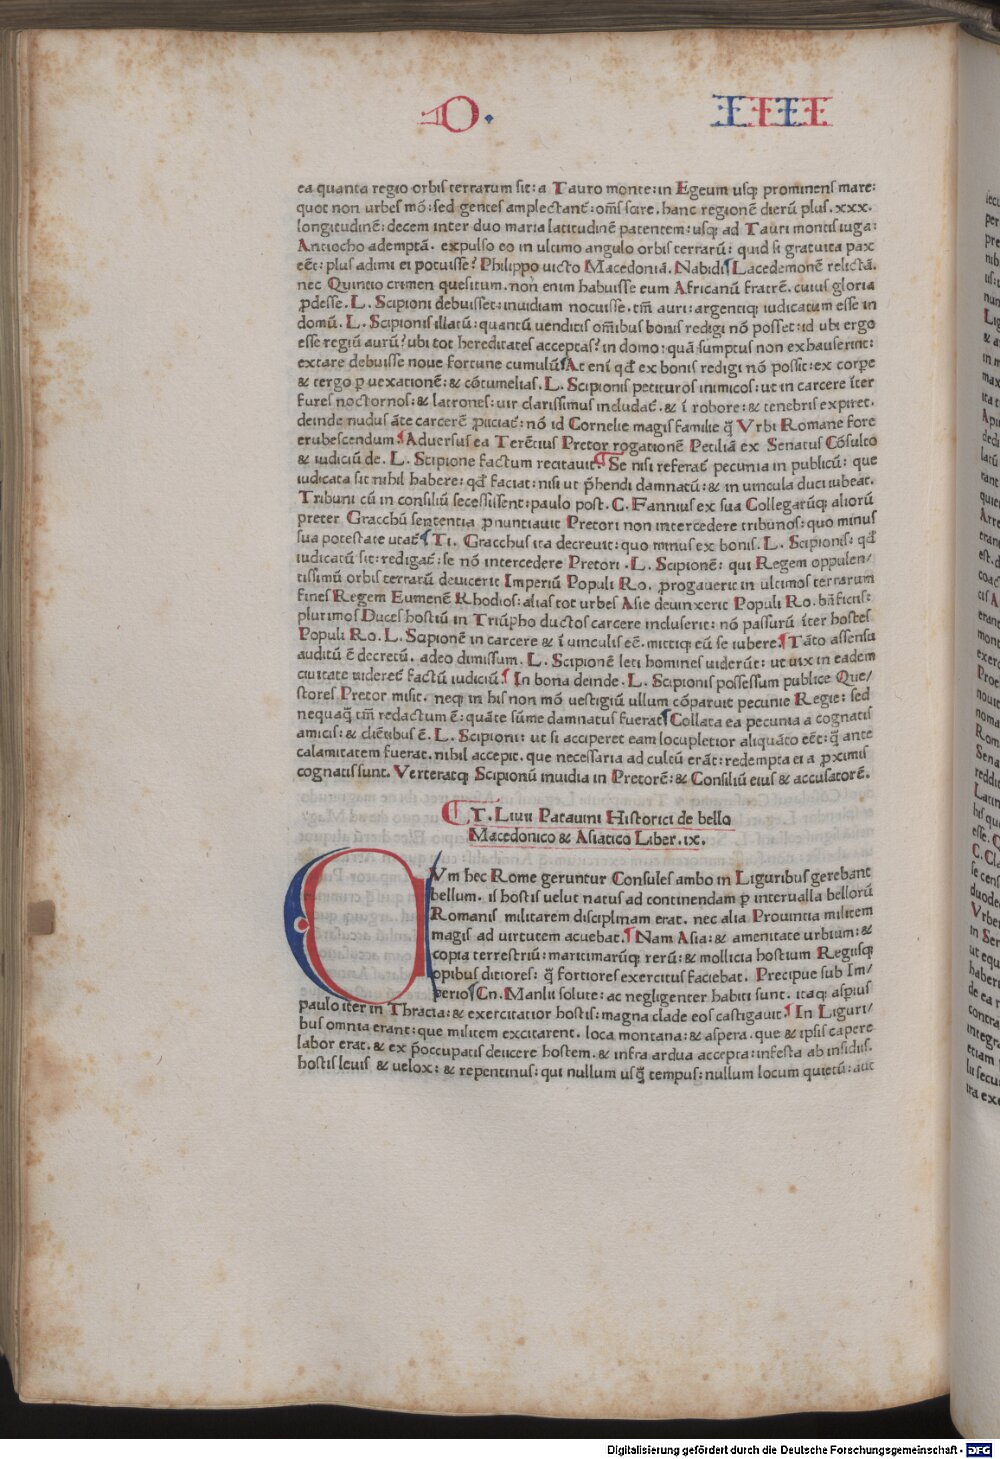 D. IIII
ea quanta regio orbis terrarum sit: a Tauro monte: in Egeum usq; prominens mare:
quot non urbes mō: sed gentes amplectant̄: om̄s scire. hanc regionē dierū plus. xxx.
longitudinē: decem inter duo maria latitudinē patentem: usq; ad Tauri montis iuga:
Antiocho ademptā. expulso eo in ultimo angulo orbis terrarū: quid si gratuita pax
eēt: plus adimi ei potuisse? Philippo uicto Macedoniā. Nabidi Lacedemonē relictā.
nec Quintio crimen quesitum. non enim habuisse eum Africanū fratrē. cuius gloria
ꝓdesse. L. Scipioni debuisset: inuidiam nocuisse. tm̄ auri: argentiq; iudicatum esse in
domū. L. Scipionis illatū: quantū uenditis om̄ibus bonis redigi nō posset: id ubi ergo
esse regiū aurū? ubi tot hereditates acceptas? in domo: quā sumptus non exhauserint:
extare debuisse noue fortune cumulū At eni qd̄ ex bonis redigi nō possit: ex corpe
& tergo ꝑ uexationē: & cōtumelias. L. Scipionis petituros inimicos: ut in carcere īter
fures noctornos: & latrones: uir clarissimus includat̄. & ī robore: & tenebris expiret.
deinde nudus āte carcerē ꝓiiciat̄: nō id Cornelie magis familie q̄ Vrbi Romane fore
erubescendum Aduersus ea Terētius Pretor rogationē Petiliā ex Senatus Cōsulto
& iudiciū de. L. Scipione factum recitauit. Se nisi referat̄ pecunia in publicū: que
iudicata sit nihil habere: qd̄ faciat: nisi ut p̄hendi damnatū: & in uincula duci iubeat.
Tribuni cū in consiliū secessissent: paulo post. C. Fannius ex sua Collegarūq; aliorū
preter Gracchū sententia ꝓnuntiauit Pretori non intercedere tribunos: quo minus
sua potestate utat̄ Ti. Gracchus ita decreuit: quo minus ex bonis. L. Scipionis: qd̄
iudicatū sit: redigat̄: se nō intercedere Pretori. L. Scipionē: qui Regem oppulen/
tissimū orbis terrarū deuicerit Imperiū Populi Ro. ꝓgauerit in ultimos terrarum
fines Regem Eumenē Rhodios: alias tot urbes Asie deuinxerit Populi Ro. bn̄ficiis:
plurimos Duces hostiū in Triūpho ductos carcere incluserit: nō passurū īter hostes
Populi Ro. L. Scipionē in carcere & ī uinculis eē. mittiq; eū se iubere. Tāto assensu
auditū ē decretū. adeo dimissum. L. Scipionē leti homines uiderūt: ut uix in eadem
ciuitate uideret̄ factū iudiciū. In bona deinde. L. Scipionis possessum publice Que/
stores Pretor misit. neq; in his non mō uestigiū ullum cōparuit pecunie Regie: sed
nequaq̄ tm̄ redactum ē: quāte sūme damnatus fuerat Collata ea pecunia a cognatis
amicis: & cliētibus ē. L. Scipioni: ut si acciperet eam locupletior aliquāto eēt: q̄ ante
calamitatem fuerat. nihil accepit. que necessaria ad cultū erāt: redempta ei a ꝓximis
cognatis sunt. Verteratq; Scipionū inuidia in Pretorē: & Consiliū eius & accusatorē.
T. Liuii Patauini Historici de bello
Macedonico & Asiatico Liber. ix.
CVm hec Rome geruntur Consules ambo in Liguribus gerebant
bellum. is hostis uelut natus ad continendam ꝑ interualla bellorū
Romanis militarem disciplinam erat. nec alia Prouincia militem
magis ad uirtutem acuebat. Nam Asia: & amenitate urbium: &
copia terrestriū: maritimarūq; rerū: & mollicia hostium Regiisq;
opibus ditiores: q̄ fortiores exercitus faciebat. Precipue sub Im/
perio Cn. Manlii solute: ac negligenter habiti sunt. itaq; asp̄ius
paulo iter in Thracia: & exercitatior hostis: magna clade eos castigauit. In Liguri/
bus omnia erant: que militem excitarent. loca montana: & aspera. que & ipsis capere
labor erat. & ex p̄occupatis deiicere hostem. & infra ardua accepta: infesta ab insidiis.
hostis leuis & uelox: & repentinus: qui nullum usq̄ tempus: nullum locum quietū: aut
Digitalisierung gefördert durch die Deutsche Forschungsgemeinschaft - DFG